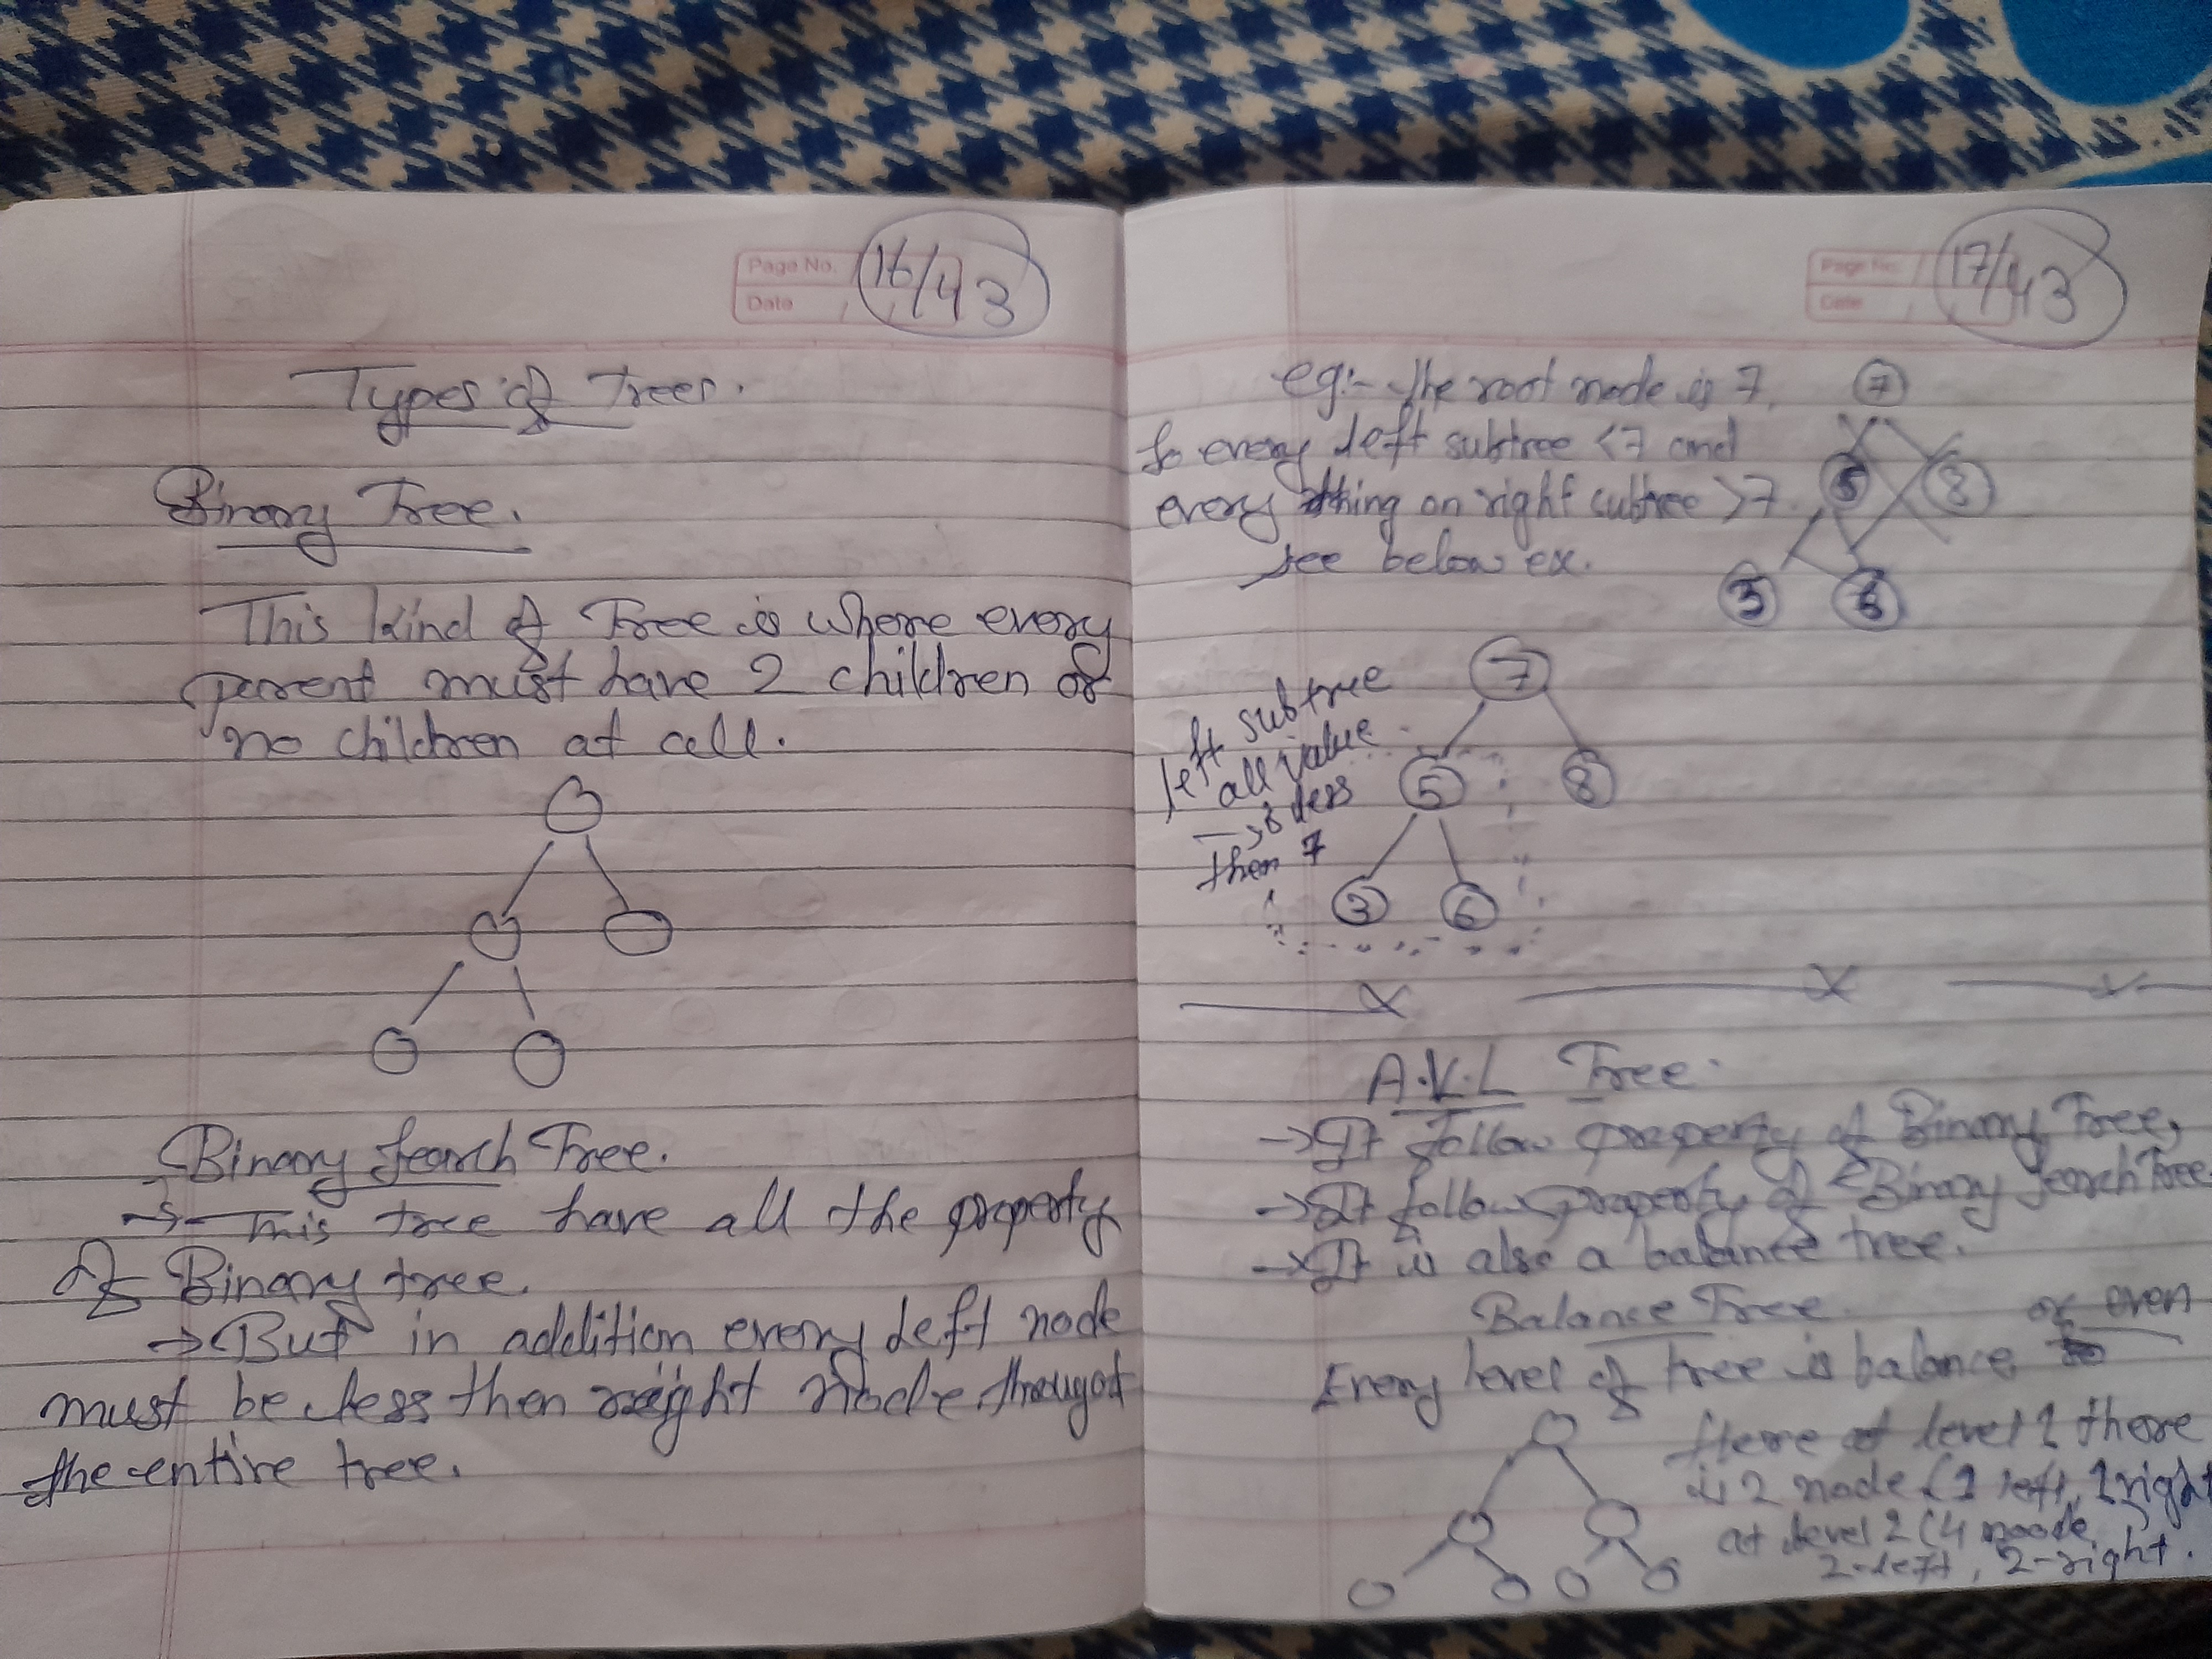 Page No. 16/43
Date
Types of Trees.
Binary Tree.
This kind of Tree is where every
parent must have 2 children or
no children at all.
Binary Search Tree.
→ This tree have all the property
of Binary tree.
→ But in addition every left node
must be less then right node througot
the entire tree.
Page No. 17/43
Date
eg:- The root node is 7,
So every left subtree <7 and
every thing on right subtree >7.
see below ex.
7
5 8
3 6
7
left subtree
all value
is less
then 7
5 8
3 6
A.V.L Tree.
→ It follow property of Binary Tree,
→ It follow property of Binary Search Tree
→ It is also a balance tree.
Balance Tree.
Every level of tree is balance or even
Here at level 1 there
is 2 node (1 left, 1 right
at level 2 (4 noode,
2-left, 2-right.